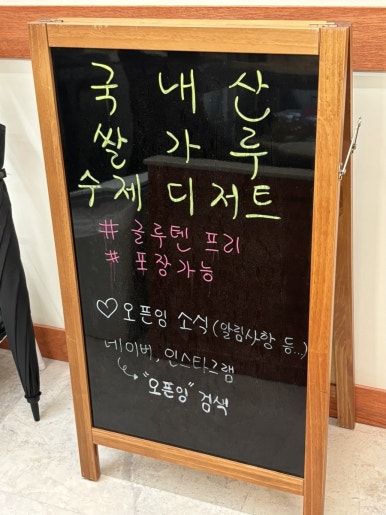 국 내 산
쌀 가 루
수제 디저트
# 글루텐 프리
# 포장가능
♡ 오픈잉 소식 (알림사항 등..)
네이버, 인스타그램
↳ "오픈잉" 검색